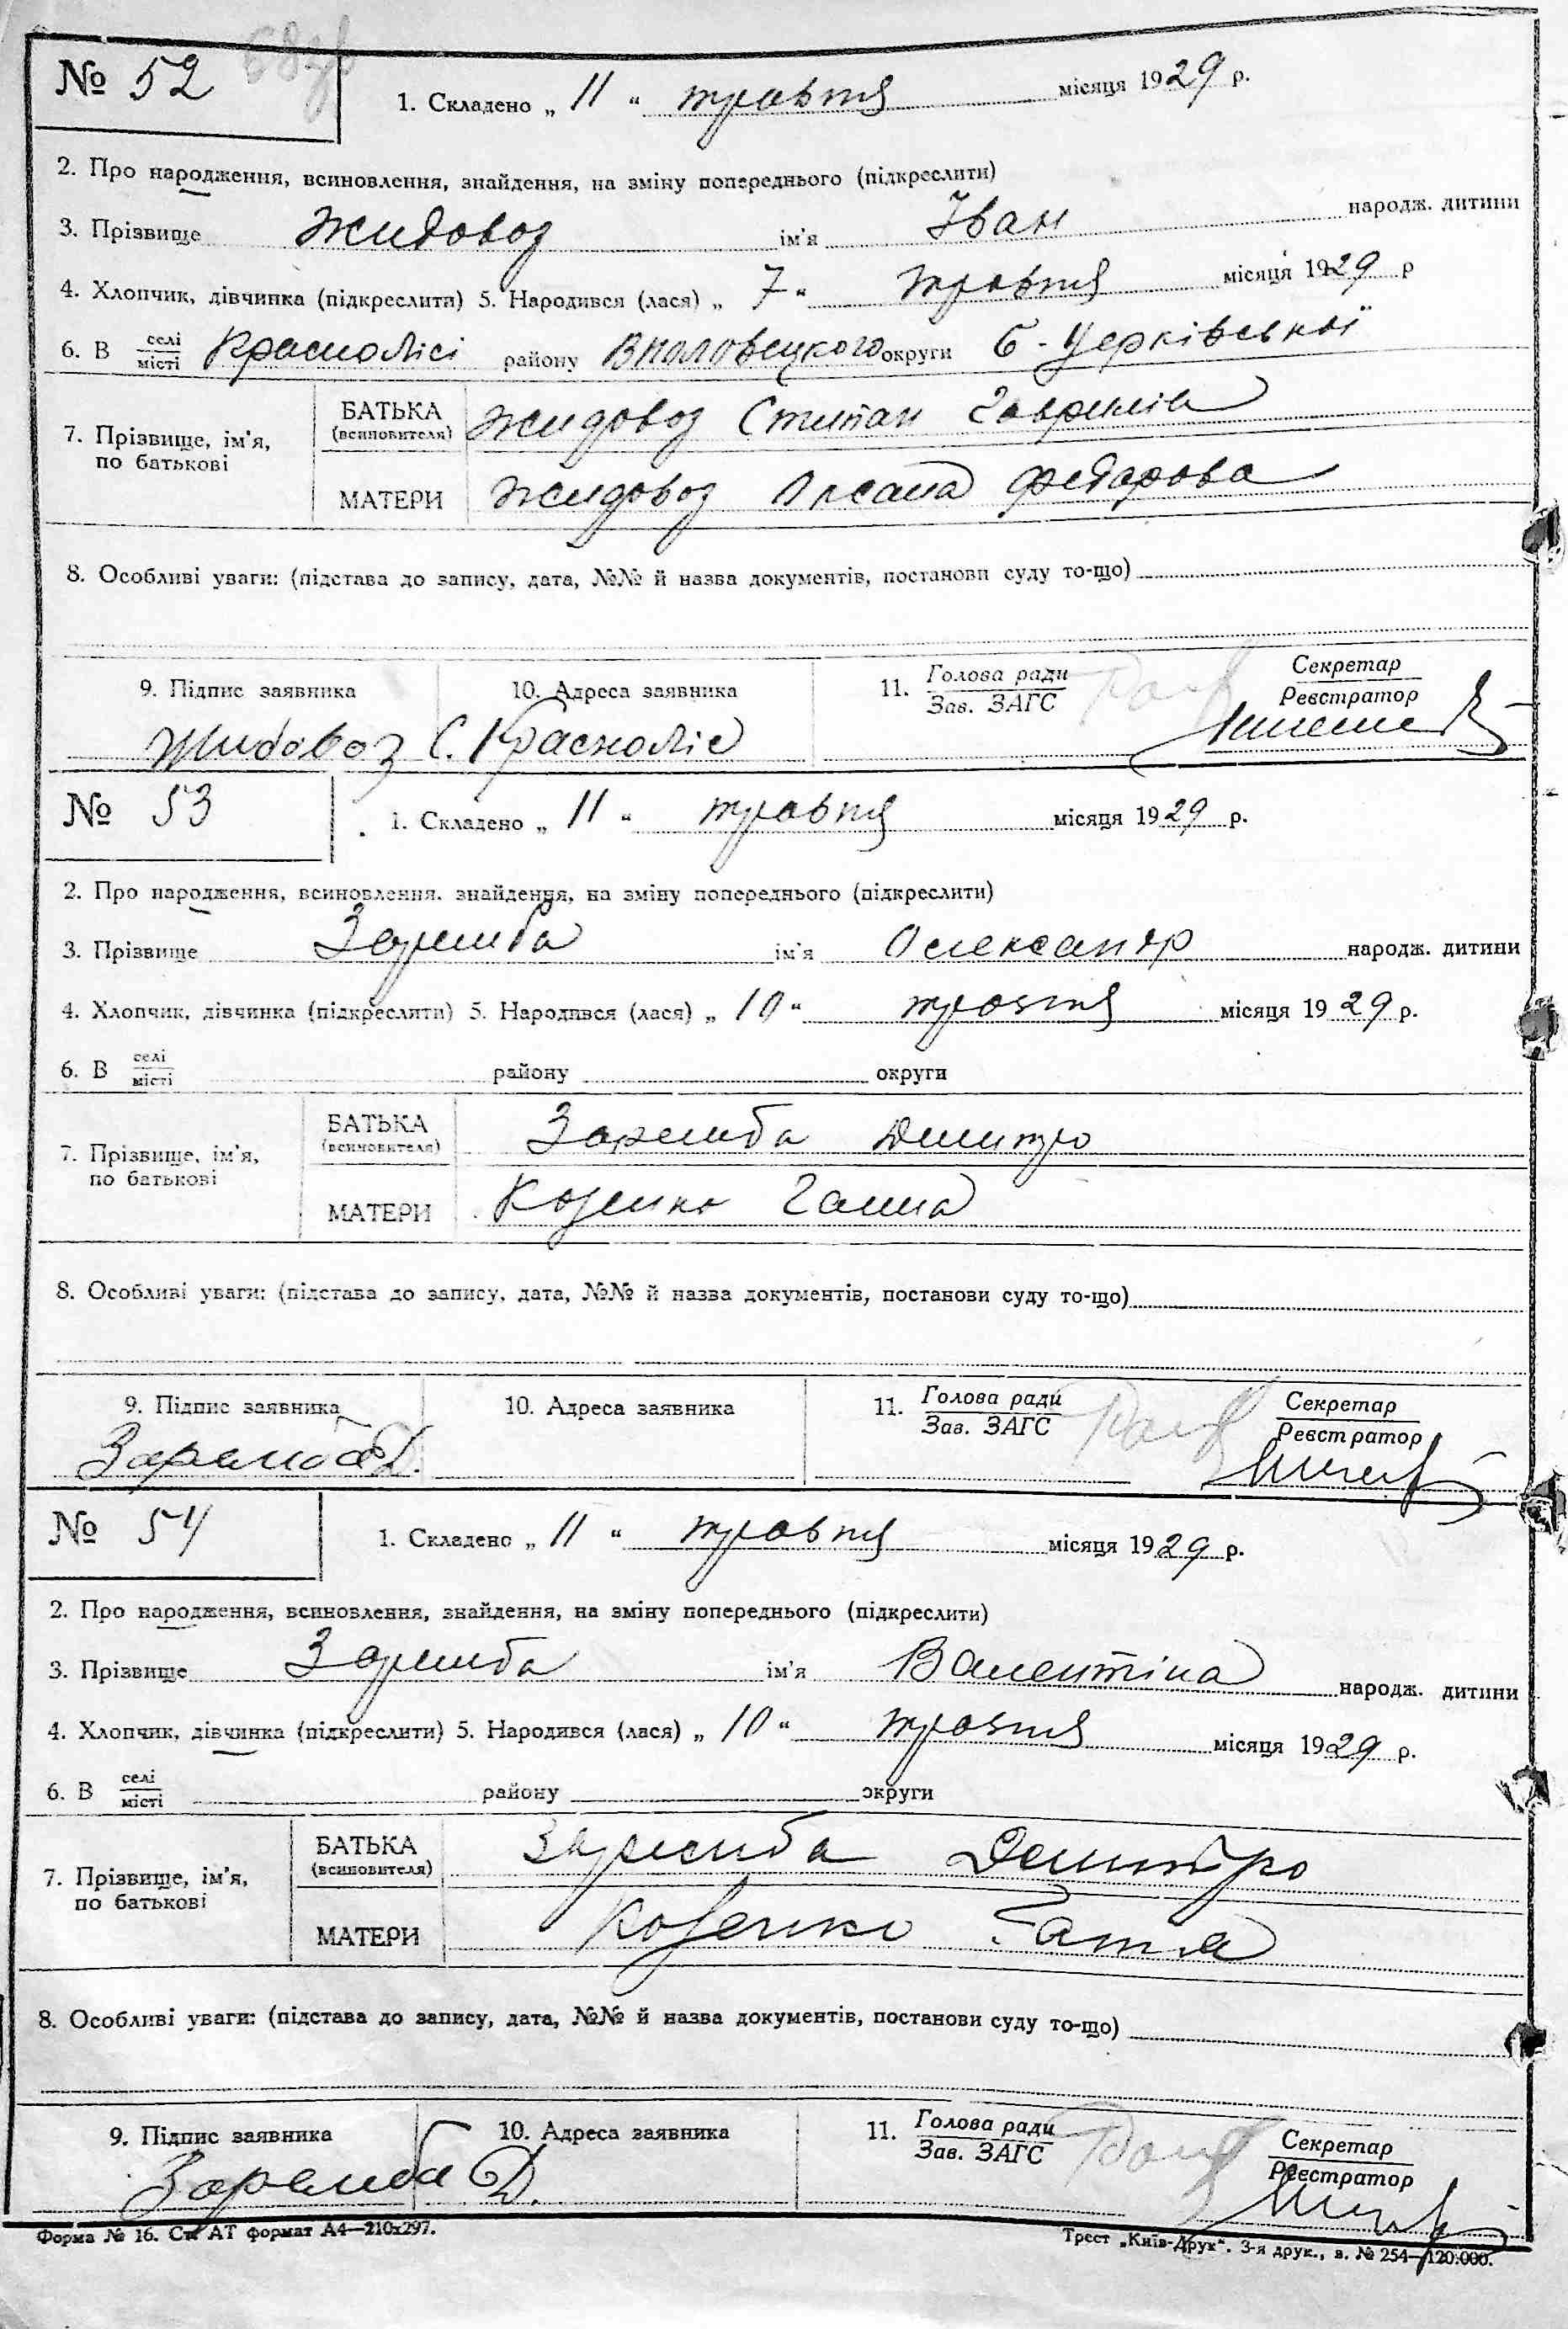 № 52
1. Складено „ 11 “ травня місяця 1929 р.
2. Про народження, всиновлення, знайдення, на зміну попереднього (підкреслити)
3. Прізвище Жидовоз ім'я Іван народж. дитини
4. Хлопчик, дівчинка (підкреслити) 5. Народився (лася) „ 7 “ травня місяця 1929 р
6. В селі/місті Краснолісі району Вполовецкого округи Б-Церківської
7. Прізвище, ім'я, по батькові
БАТЬКА (всиновителя) Жидовоз Степан Гаврилів
МАТЕРИ Жидовоз Оксана Федарова
8. Особливі уваги: (підстава до запису, дата, №№ й назва документів, постанови суду то-що)
9. Підпис заявника 10. Адреса заявника 11. Голова ради/Зав. ЗАГС Секретар/Реєстратор
Жидовоз С. Красноліс
№ 53
1. Складено „ 11 “ травня місяця 1929 р.
2. Про народження, всиновлення. знайдення, на зміну попереднього (підкреслити)
3. Прізвище Заремба ім'я Олександр народж. дитини
4. Хлопчик, дівчинка (підкреслити) 5. Народився (лася) „ 10 “ травня місяця 1929 р.
6. В селі/місті району округи
7. Прізвище, ім'я, по батькові
БАТЬКА (всиновителя) Заремба Дмитро
МАТЕРИ Козенко Ганна
8. Особливі уваги: (підстава до запису, дата, №№ й назва документів, постанови суду то-що)
9. Підпис заявника 10. Адреса заявника 11. Голова ради/Зав. ЗАГС Секретар/Реєстратор
Заремба Д.
№ 54
1. Складено „ 11 “ травня місяця 1929 р.
2. Про народження, всиновлення, знайдення, на зміну попереднього (підкреслити)
3. Прізвище Заремба ім'я Валентіна народж. дитини
4. Хлопчик, дівчинка (підкреслити) 5. Народився (лася) „ 10 “ травня місяця 1929 р.
6. В селі/місті району округи
7. Прізвище, ім'я, по батькові
БАТЬКА (всиновителя) Заремба Дмитро
МАТЕРИ Козенко Ганна
8. Особливі уваги: (підстава до запису, дата, №№ й назва документів, постанови суду то-що)
9. Підпис заявника 10. Адреса заявника 11. Голова ради/Зав. ЗАГС Секретар/Реєстратор
Заремба Д.
Форма № 16. Ст. АТ формат А4—210х297.
Трест „Київ-Друк“. 3-я друк., з. № 254—120.000.